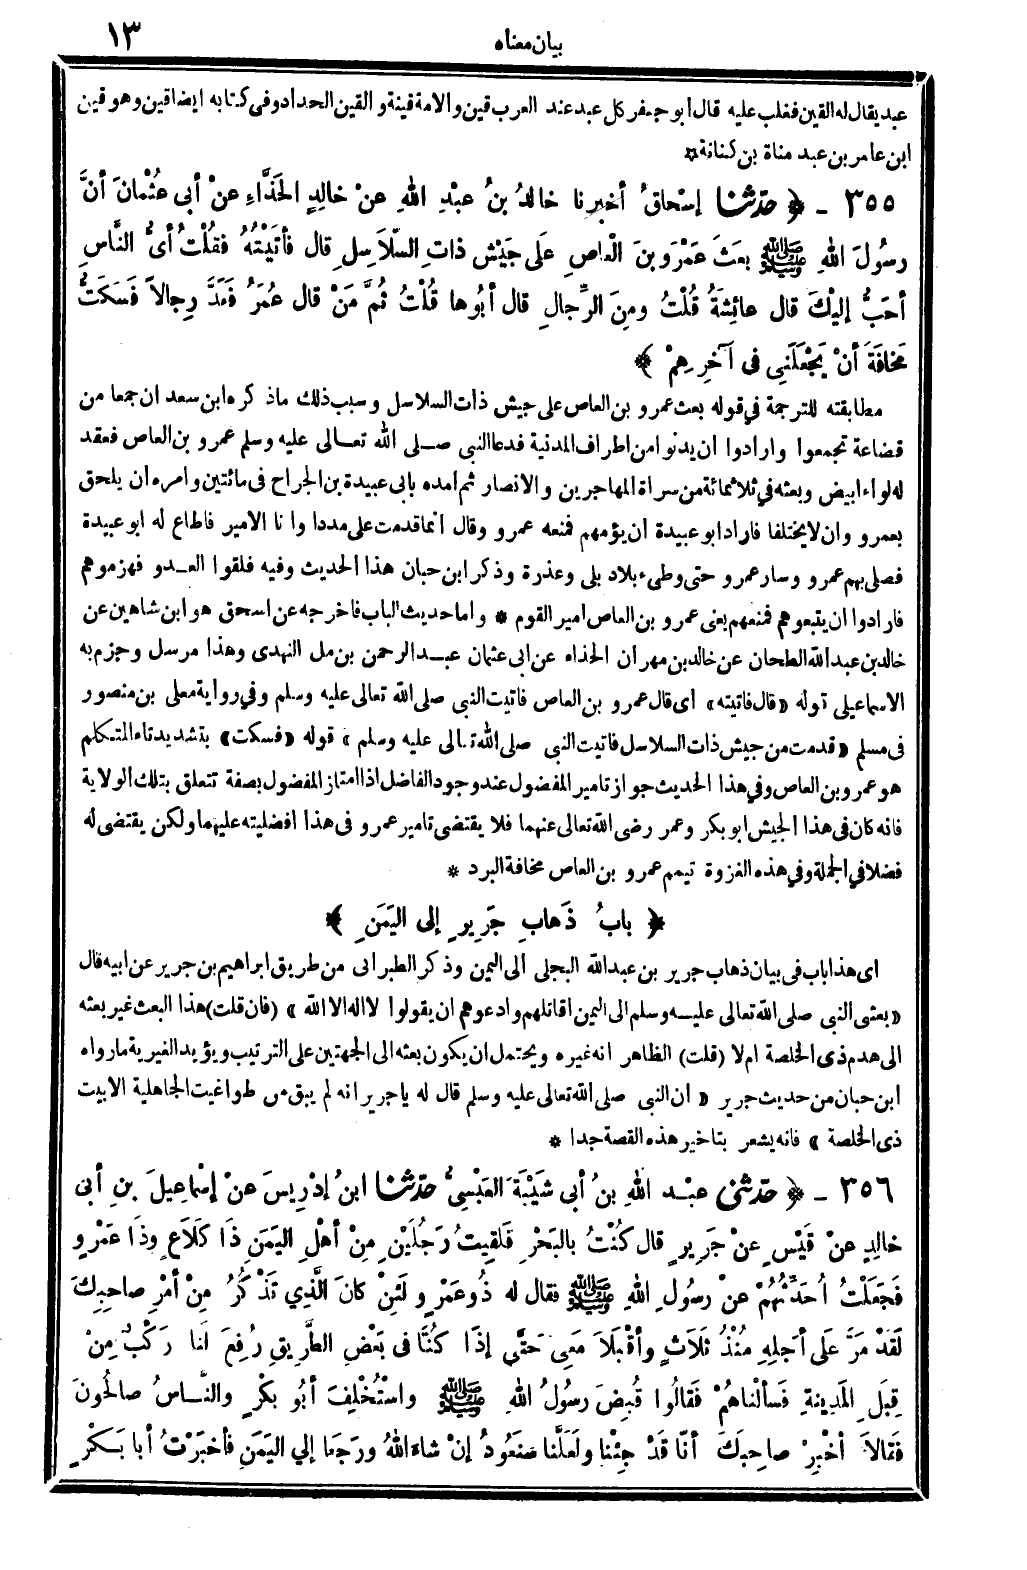 بيان معناه
١٣
عبد يقال له القين فغلب عليه قال أبو جعفر كل عبد عند العرب قين والامة قينة والقين الحداد وفي كتابه ايضا قين وهو قين
ابن عامر بن عبد مناة بن كنانة *
٣٥٥ - ﴿ حدثنا إسْحاقُ أخبرنا خالدُ بنُ عبْدِ اللهِ عنْ خالدٍ الحَذَّاءِ عنْ أبي عُثْمانَ أنَّ
رسُولَ اللهِ ﷺ بعَثَ عَمْرَو بنَ الْعاصِ علَى جَيْشِ ذاتِ السّلاَسِلِ قال فأتَيْتُهُ فقُلْتُ أيُّ النَّاسِ
أحَبُّ إلَيْكَ قال عائِشَةُ قُلْتُ ومِنَ الرِّجالِ قال أبُوها قُلْتُ ثُمَّ مَنْ قال عُمَرُ فَعَدَّ رِجالاً فَسَكَتُّ
مَخافَةَ أنْ يَجْعَلَنِي في آخِرِهِمْ ﴾
مطابقته للترجمة في قوله بعث عمرو بن العاص على جيش ذات السلاسل وسبب ذلك ماذكره ابن سعد ان جمعا من
قضاعة تجمعوا وارادوا ان يدنوا من اطراف المدنية فدعا النبي صلى الله تعالى عليه وسلم عمرو بن العاص فعقد
له لواء ابيض وبعثه في ثلاثمائة من سراة المهاجرين والانصار ثم امده بابي عبيدة بن الجراح في مائتين وامره ان يلحق
بعمرو وان لا يختلفا فاراد ابو عبيدة ان يؤمهم فمنعه عمرو وقال انما قدمت على مددا وانا الامير فاطاع له ابو عبيدة
فصلى بهم عمرو وسار عمرو حتى وطىء بلاد بلى وعذرة وذكر ابن حبان هذا الحديث وفيه فلقوا العدو فهزموهم
فارادوا ان يتبعوهم فمنعهم يعنى عمرو بن العاص امير القوم * واما حديث الباب فاخرجه عن اسحق هو ابن شاهين عن
خالد بن عبد الله الطحان عن خالد بن مهران الحذاء عن ابى عثمان عبد الرحمن بن مل النهدى وهذا مرسل وجزم به
الاسماعيلى قوله «قال فاتيته» اى قال عمرو بن العاص فاتيت النبى صلى الله تعالى عليه وسلم وفي رواية معلى بن منصور
فى مسلم «قدمت من جيش ذات السلاسل فاتيت النبى صلى الله تعالى عليه وسلم» قوله «فسكت» بتشديد تاء المتكلم
هو عمرو بن العاص وفي هذا الحديث جواز تامير المفضول عند وجود الفاضل اذا امتاز المفضول بصفة تتعلق بتلك الولاية
فانه كان في هذا الجيش ابو بكر وعمر رضى الله تعالى عنهما فلا يقتضى تامير عمرو فى هذا افضليته عليهما ولكن يقتضى له
فضلا في الجملة وفي هذه الغزوة تيمم عمرو بن العاص مخافة البرد *
﴿ بابُ ذَهابِ جَرِيرٍ إلى اليَمَنِ ﴾
اى هذا باب فى بيان ذهاب جرير بن عبد الله البجلى الى اليمن وذكر الطبرانى من طريق ابراهيم بن جرير عن ابيه قال
«بعثى النبى صلى الله تعالى عليه وسلم الى اليمن اقاتلهم وادعوهم ان يقولوا لا اله الا الله» (فان قلت) هذا البعث غير بعثه
الى هدم ذى الخلصة ام لا (قلت) الظاهر انه غيره ويحتمل ان يكون بعثه الى الجهتين على الترتيب ويؤيد الغيرية مارواه
ابن حبان من حديث جرير «ان النبى صلى الله تعالى عليه وسلم قال له ياجرير انه لم يبق من طواغيت الجاهلية الا بيت
ذى الخلصة» فانه يشعر بتاخير هذه القصة جدا *
٣٥٦ - ﴿ حدّثني عبْد اللهِ بنُ أبي شَيْبَةَ العَبْسِيُّ حدثنا ابنُ إدْرِيسَ عنْ إسْماعِيلَ بنِ أبي
خالِدٍ عنْ قَيْسٍ عنْ جَرِيرٍ قال كُنْتُ بالبَحْرِ فَلَقِيتُ رَجُلَيْنِ مِنْ أهْلِ اليَمَنِ ذَا كَلاَعٍ وذَا عَمْرٍو
فَجَعَلْتُ أُحَدِّثُهُمْ عنْ رسُولِ اللهِ ﷺ فقال له ذُو عَمْرٍو لَئِنْ كانَ الَّذِي تَذْكُرُ مِنْ أمْرِ صاحِبِكَ
لَقَدْ مَرَّ علَى أجَلِهِ مُنْذُ ثَلاَثٍ وأقْبَلاَ مَعِي حَتَّى إذَا كُنَّا فى بَعْضِ الطَّرِيقِ رُفِعَ لَنا رَكْبٌ مِنْ
قِبَلِ المَدِينَةِ فَسألْناهُمْ فَقالُوا قُبِضَ رسُولُ اللهِ ﷺ واسْتُخْلِفَ أبُو بكْرٍ والنَّاسُ صالحُونَ
فَقالاَ أخْبِرْ صاحِبَكَ أنّا قَدْ جِئْنا ولَعَلَّنا سَنَعُودُ إنْ شاءَ اللهُ ورَجَعا إلي اليَمَنِ فأخبَرْتُ أبا بَكْرٍ